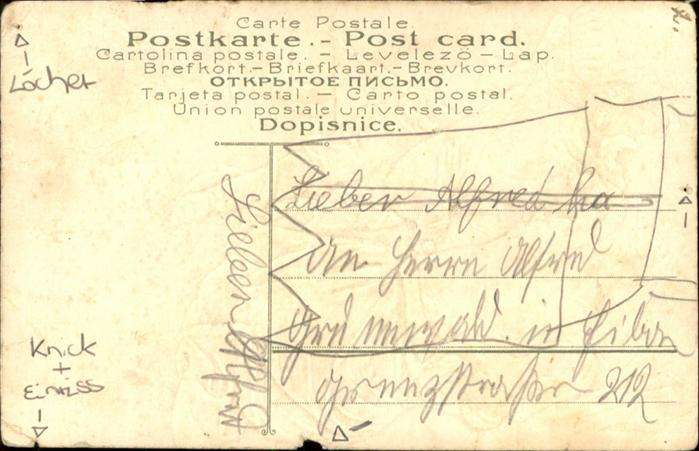 Carte Postale.
Postkarte. - Post card.
Cartolina postale. - Levelező - Lap.
Brefkort.-Briefkaart.-Brevkort.
ОТКРЫТОЕ ПИСЬМО.
Tarjeta postal. - Carto postal.
Union postale universelle.
Dopisnice.
Löcher
Lieber Alfred
An Herrn Alfred
Grunewald. in
212
Lieben Alfred
Knick
+
Einriss